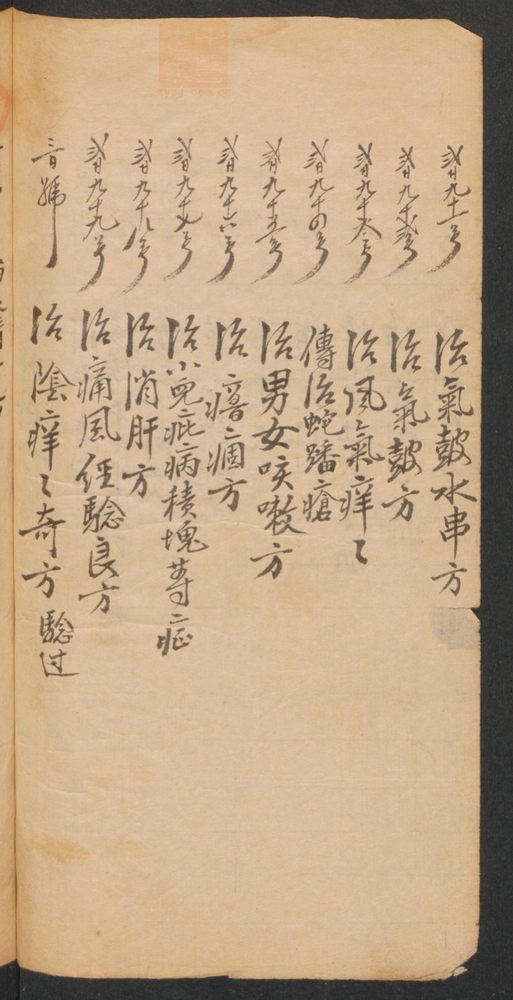 贰百九十一号 治氣鼓水串方
贰百九十贰号 治氣鼓方
贰百九十叁号 治风氣痒〻
贰百九十四号 傳治蛇蟠瘡
贰百九十五号 治男女咳嗽方
贰百九十六号 治瘖痼方
贰百九十七号 治小兒疵病積塊等症
贰百九十八号 治消肝方
贰百九十九号 治痛風經驗良方
叁百號 治陰痒〻奇方 驗过